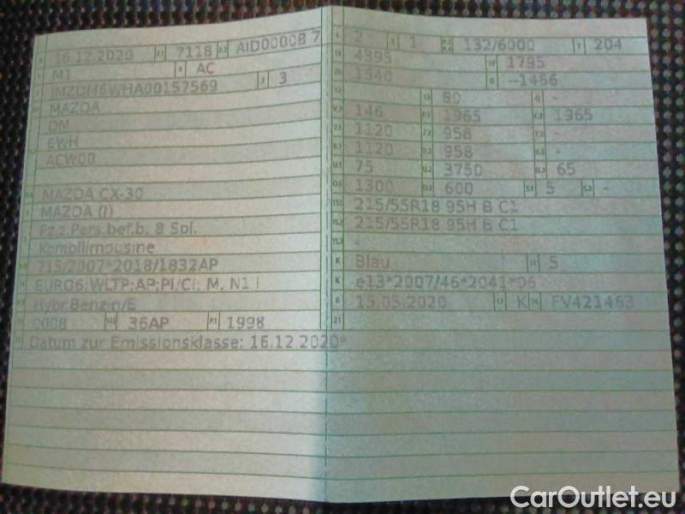 16.12.2020 7118 AID0000B 7
M1 AC
JMZDM6WHA00157569 3
MAZDA
DM
EWH
ACW00
MAZDA CX-30
MAZDA (J)
Fz.z.Pers.bef.b. 8 Spl.
Kombilimousine
715/2007*2018/1832AP
EURO6;WLTP;AP;PI/CI; M, N1 I
Hybr.Benzin/E
0008 36AP 1998
Datum zur Emissionsklasse: 16.12.2020*
2 1 132/6000 204
4395 1795
1540 --1456
80 -
146 1965 1965
1120 958 -
1120 958 -
75 3750 65
1300 600 5 -
215/55R18 95H B C1
215/55R18 95H B C1
-
Blau 5
e13*2007/46*2041*06
15.05.2020 K FV421463
CarOutlet.eu